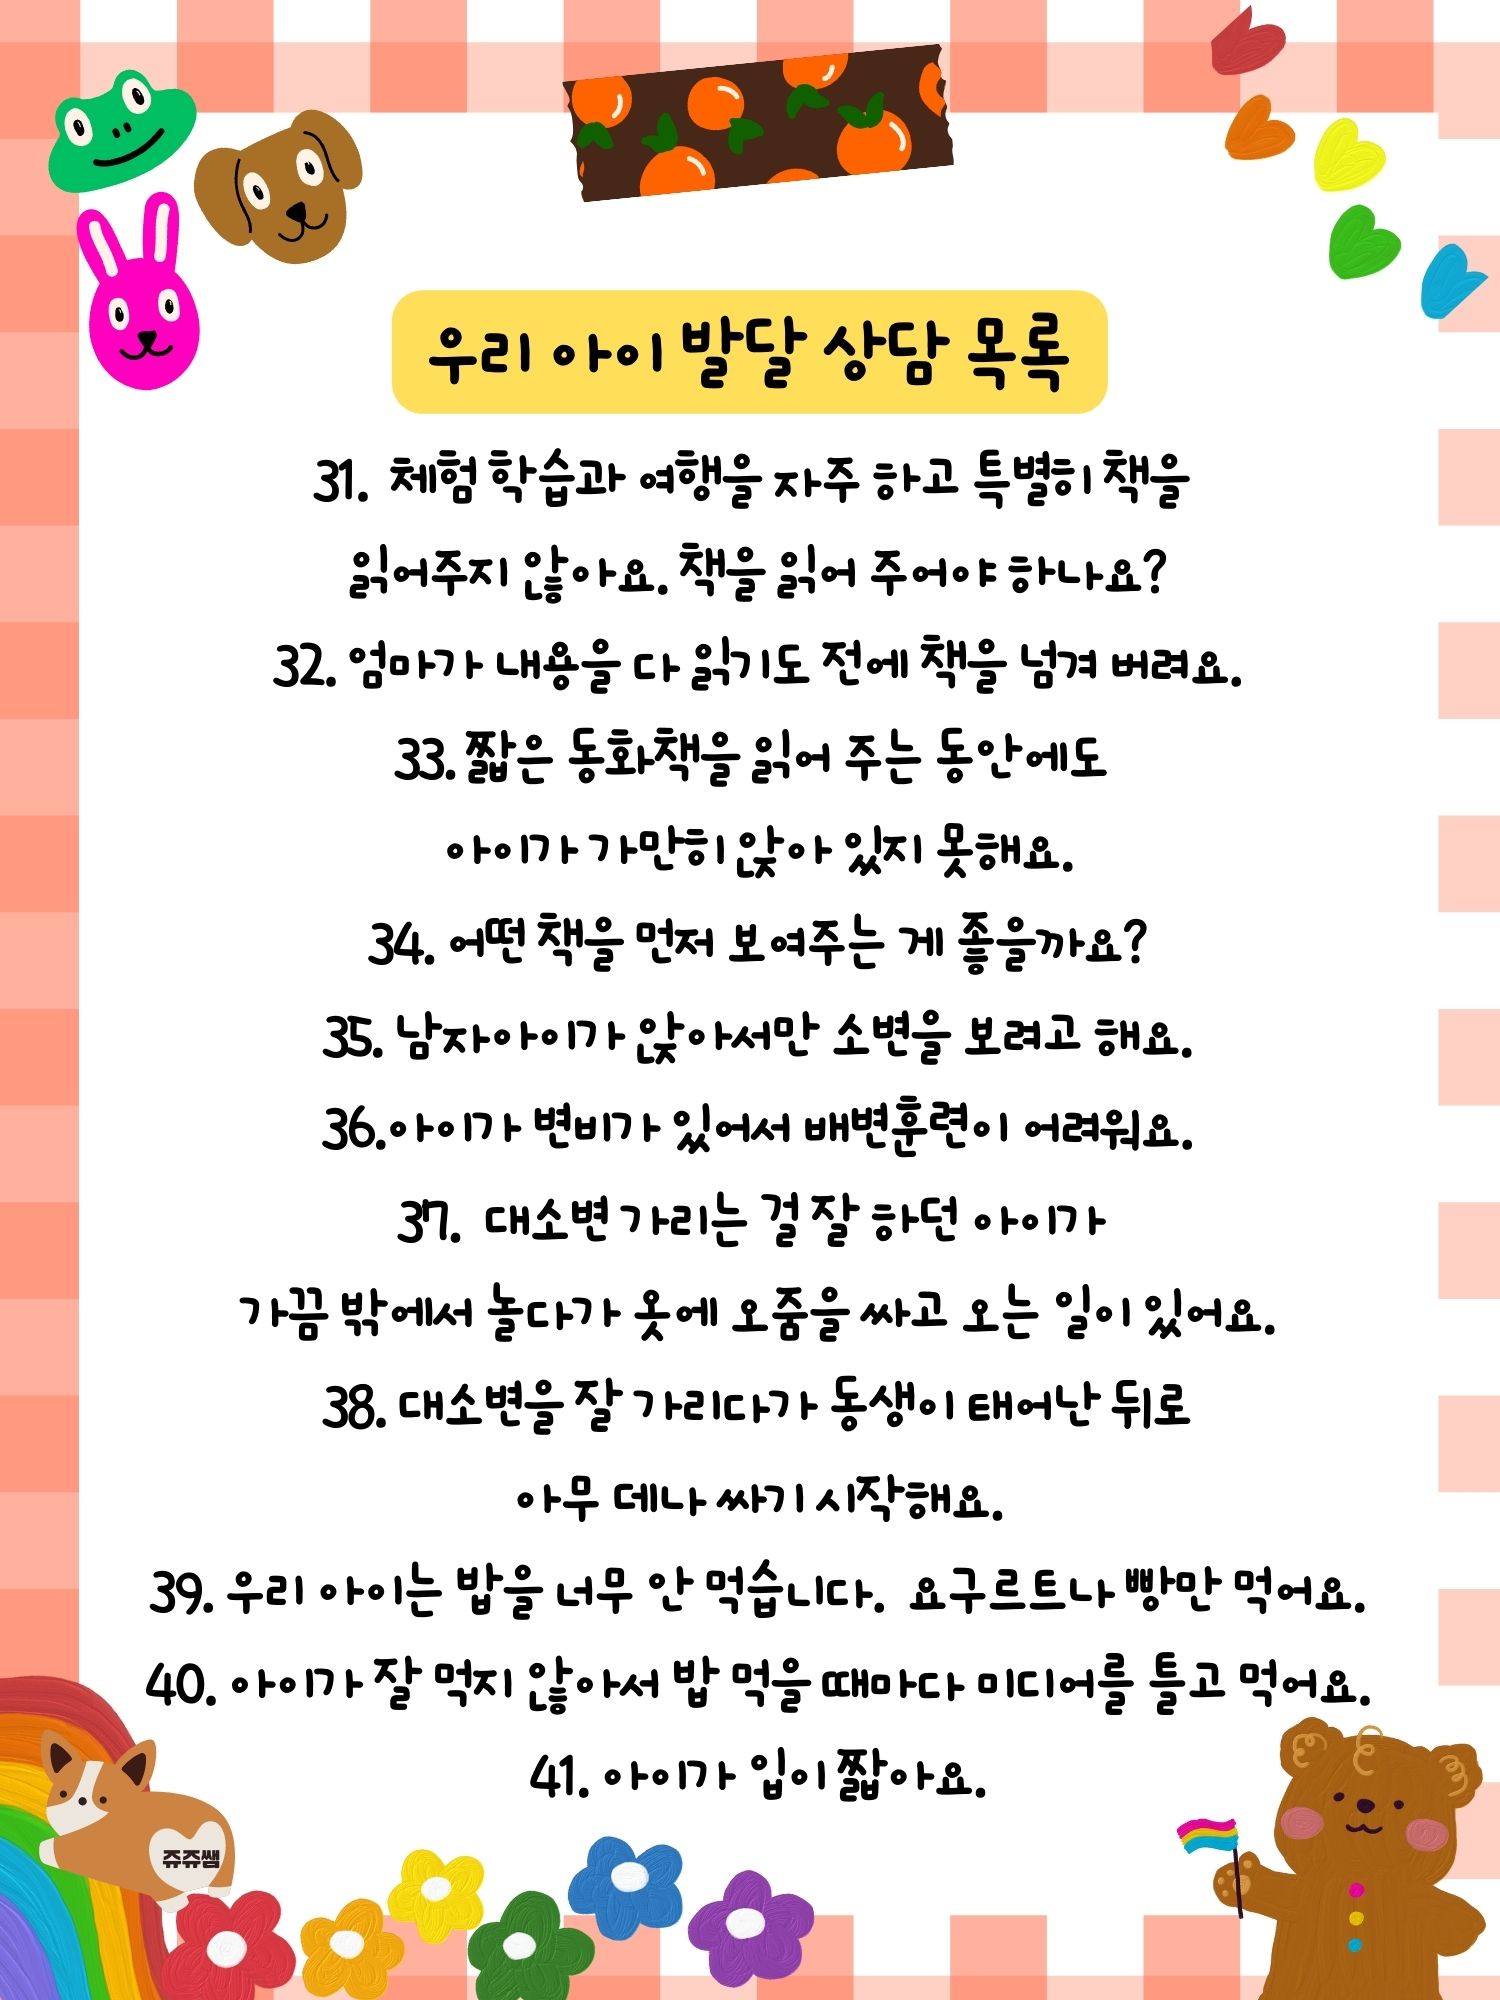 우리 아이 발달 상담 목록
31. 체험 학습과 여행을 자주 하고 특별히 책을
읽어주지 않아요. 책을 읽어 주어야 하나요?
32. 엄마가 내용을 다 읽기도 전에 책을 넘겨 버려요.
33. 짧은 동화책을 읽어 주는 동안에도
아이가 가만히 앉아 있지 못해요.
34. 어떤 책을 먼저 보여주는 게 좋을까요?
35. 남자아이가 앉아서만 소변을 보려고 해요.
36.아이가 변비가 있어서 배변훈련이 어려워요.
37. 대소변 가리는 걸 잘 하던 아이가
가끔 밖에서 놀다가 옷에 오줌을 싸고 오는 일이 있어요.
38. 대소변을 잘 가리다가 동생이 태어난 뒤로
아무 데나 싸기 시작해요.
39. 우리 아이는 밥을 너무 안 먹습니다. 요구르트나 빵만 먹어요.
40. 아이가 잘 먹지 않아서 밥 먹을 때마다 미디어를 틀고 먹어요.
41. 아이가 입이 짧아요.
쥬쥬쌤